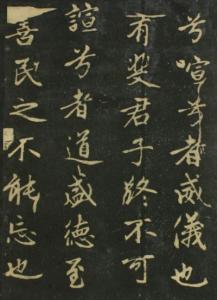 兮喧兮者威儀也
有斐君子終不可
諠兮者道盛德至
善民之不能忘也